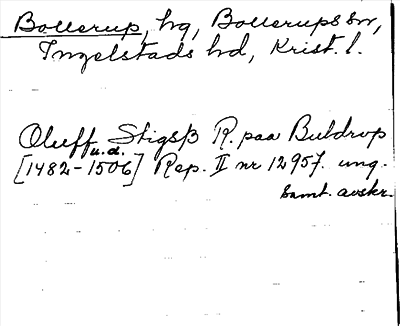 Bollerup, hg, Bollerups sn,
Ingelstads hd, Krist. l.
Oluff Stigsß R. paa Buldrop
u.d.
[1482-1506] Rep. II nr 12957. ung.
samt. avskr.